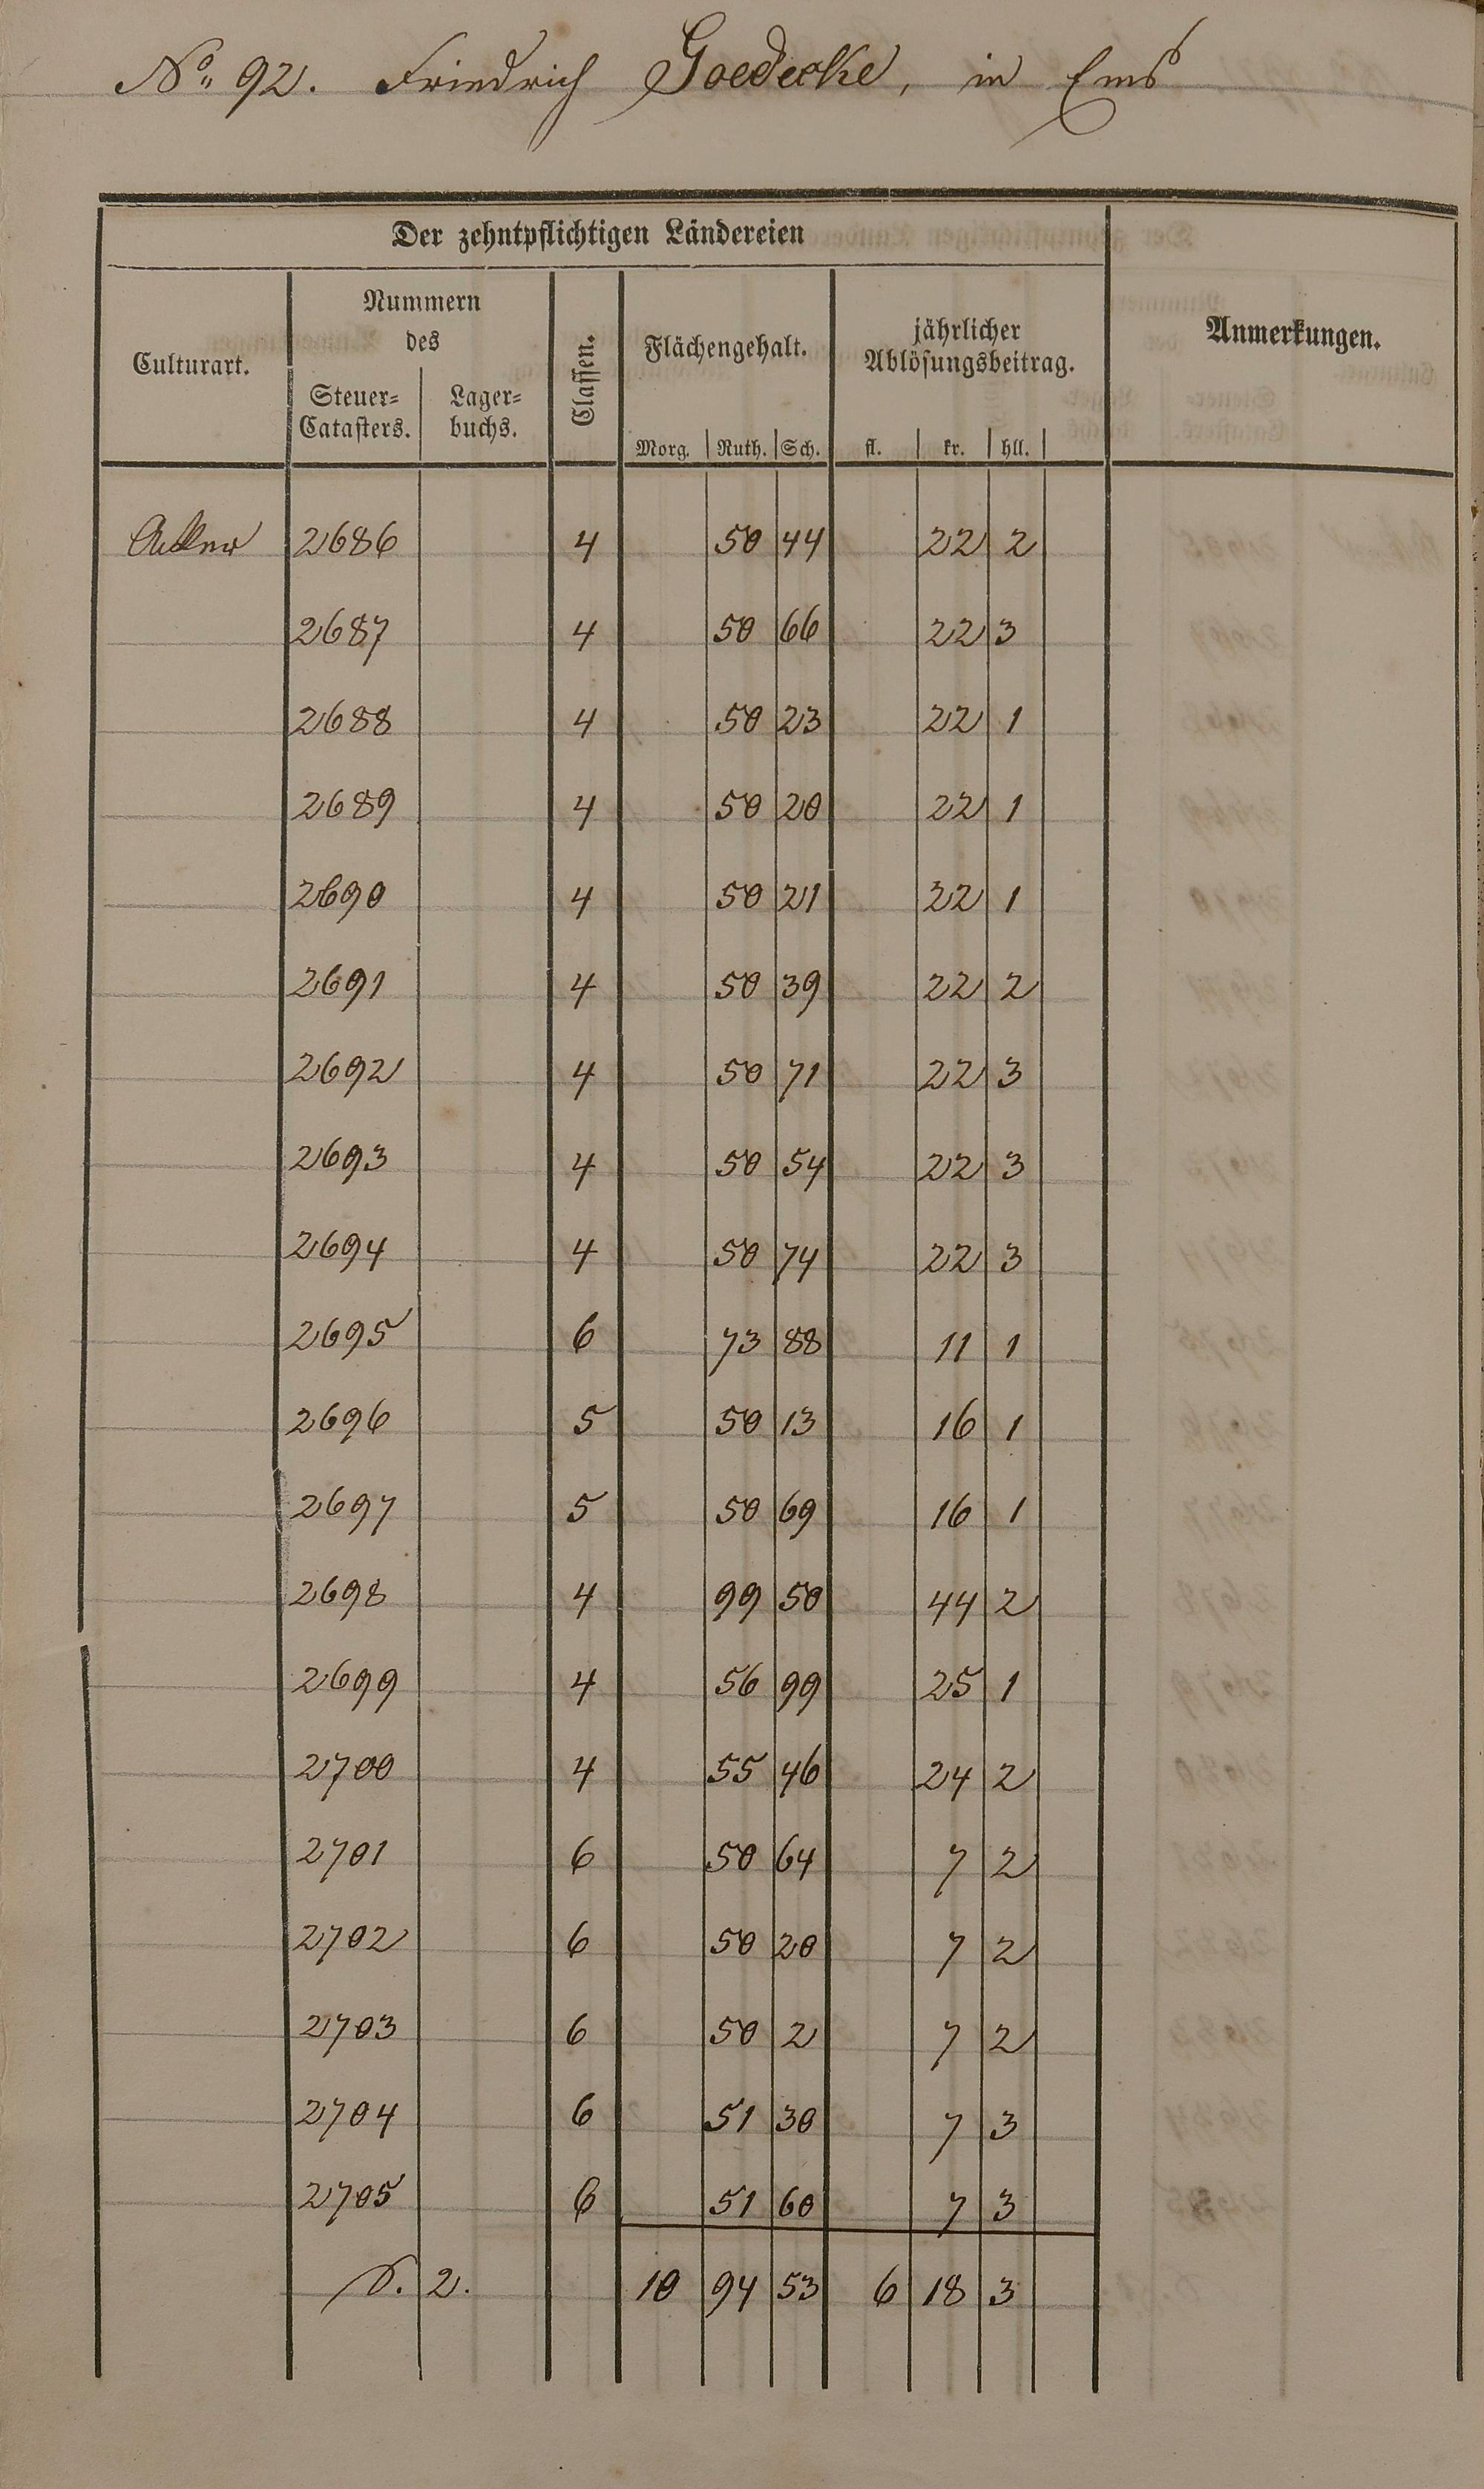 No. 92. Friedrich Goedecke, in Ems
Der zehntpflichtigen Ländereien
Culturart. Nummern des Steuer=Catasters. Lager=buchs. Classen. Flächengehalt. Morg. Ruth. Sch. jährlicher Ablösungsbeitrag. fl. kr. hll. Anmerkungen.
Acker 2686 4 50 44 22 2
2687 4 50 66 22 3
2688 4 50 23 22 1
2689 4 50 20 22 1
2690 4 50 21 22 1
2691 4 50 39 22 2
2692 4 50 71 22 3
2693 4 50 54 22 3
2694 4 50 74 22 3
2695 6 73 88 11 1
2696 5 50 13 16 1
2697 5 50 69 16 1
2698 4 99 50 44 2
2699 4 56 99 25 1
2700 4 55 46 24 2
2701 6 50 64 7 2
2702 6 50 20 7 2
2703 6 50 2 7 2
2704 6 51 30 7 3
2705 6 51 60 7 3
S. 2. 10 94 53 6 18 3